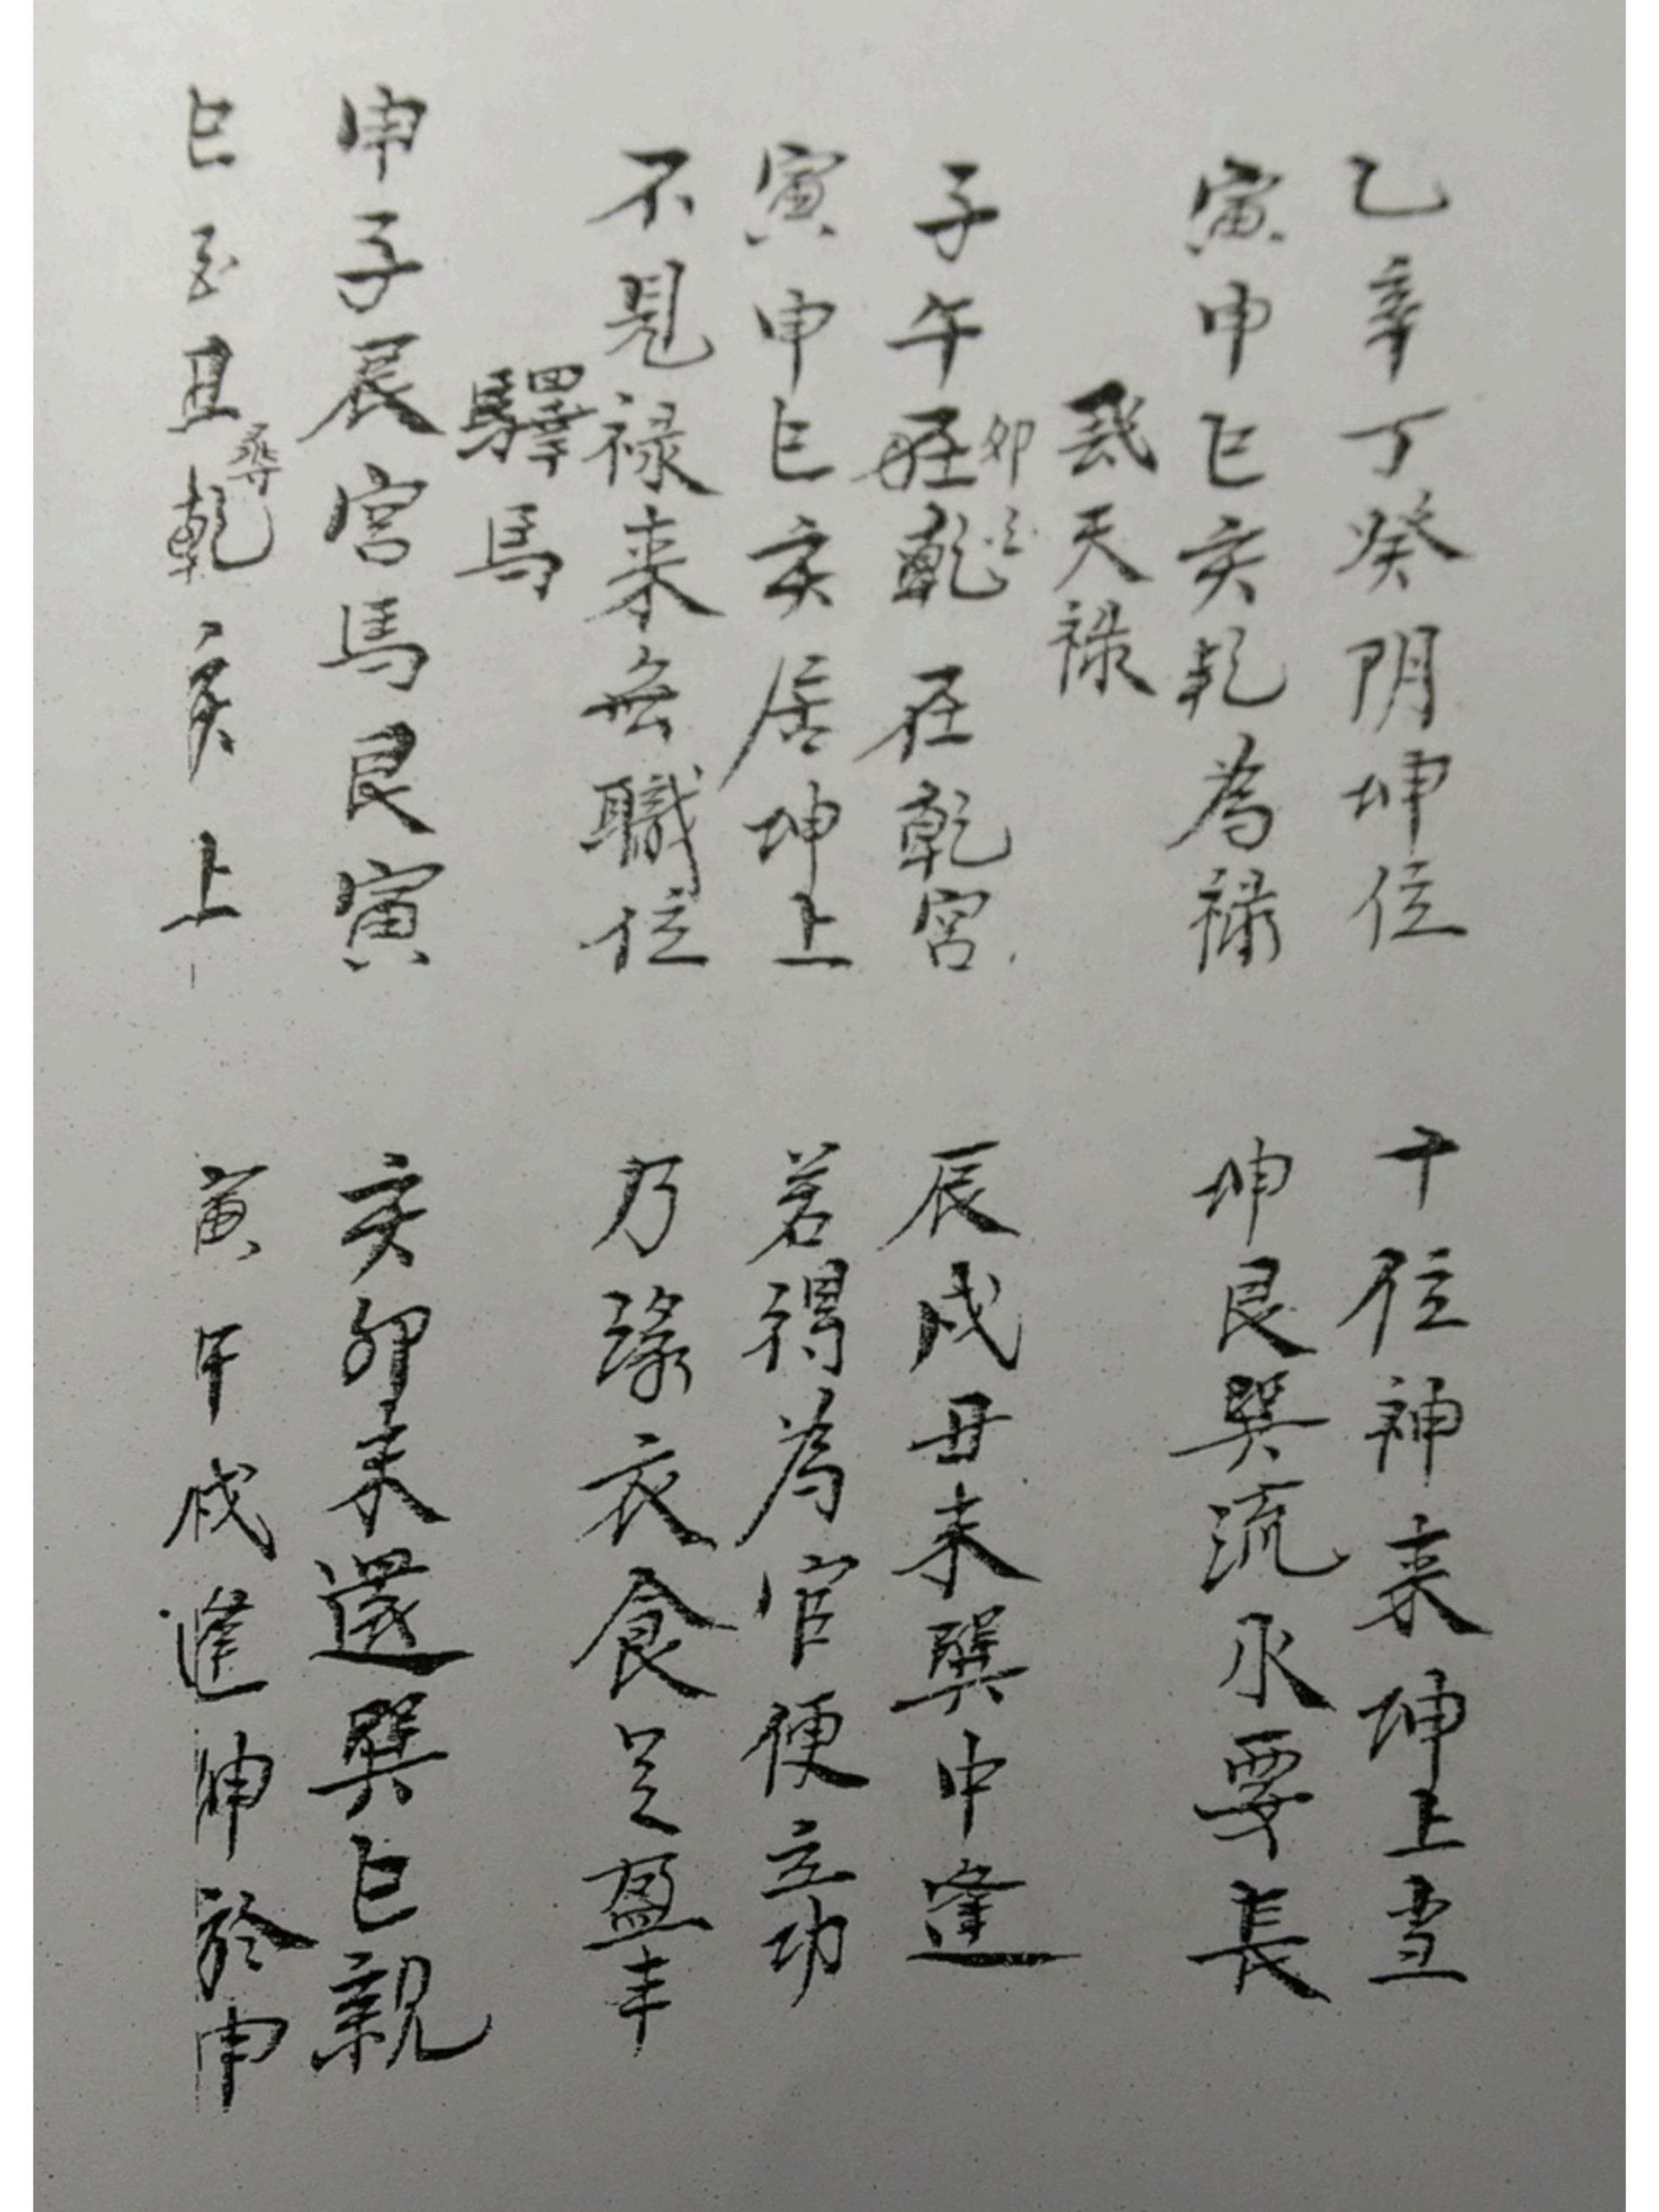 乙辛丁癸阴坤位 十位神来坤上当
寅申巳亥乾为禄 坤艮巽流水要長
天禄
子午卯乾在乾宮 辰戌丑未巽中逢
寅申巳亥居坤上 若得為官便立功
不見禄来無職位 乃緣衣食足盈丰
四驛馬
申子辰宮馬艮寅 亥卯未還巽巳親
巳酉丑尋乾亥上 寅午戌逢坤於申